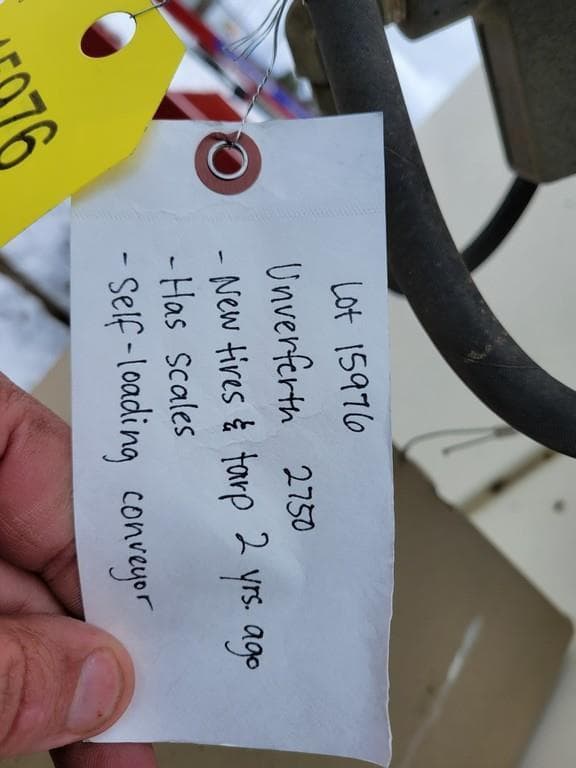 Lot 15976
Unverferth 2750
- New tires & tarp 2 yrs. ago
- Has scales
- Self-loading conveyor
15976